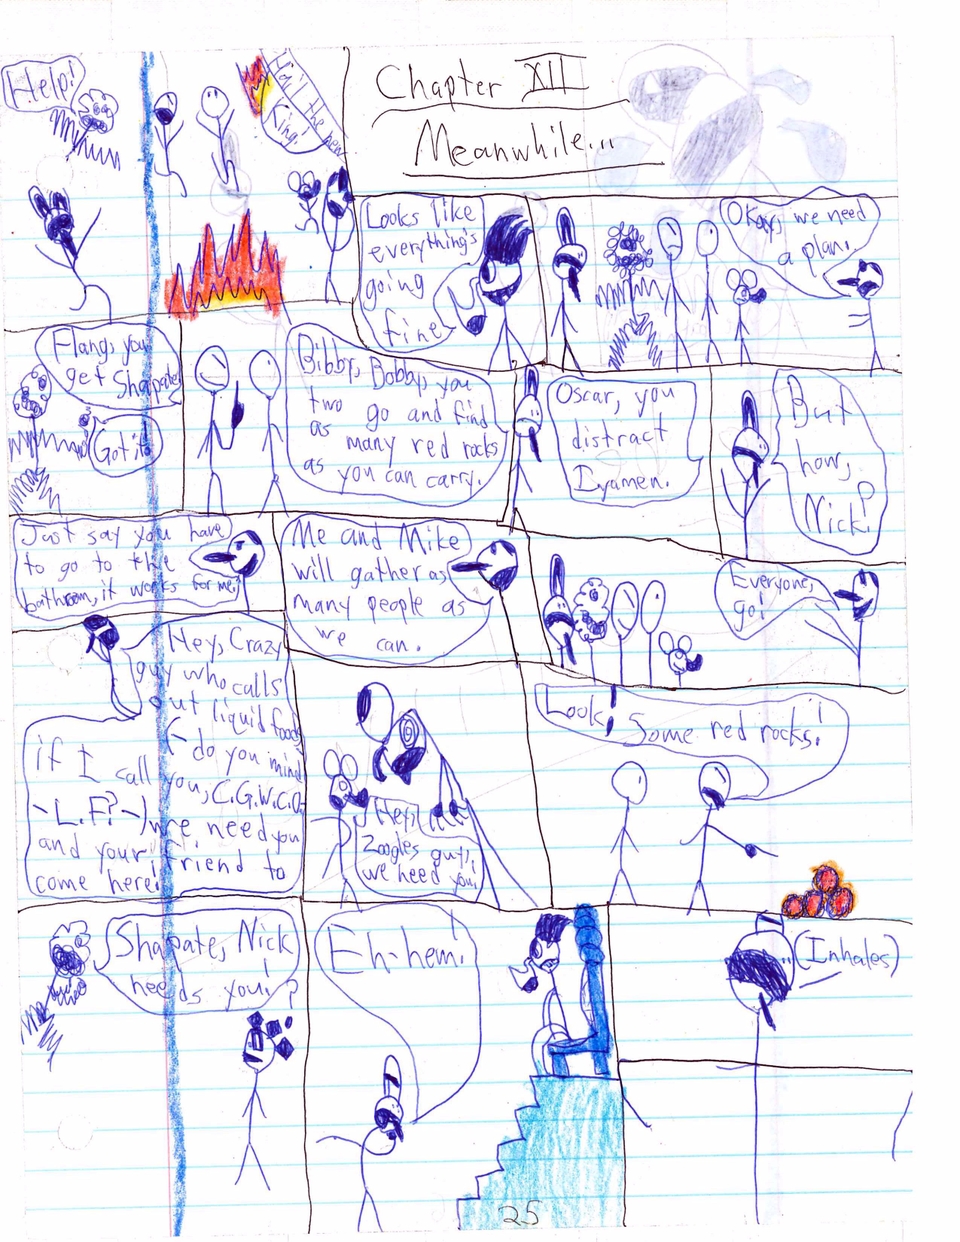 Help!
Hail the new
King!
Chapter XII
Meanwhile...
Looks like
everything's
going
fine
Okay, we need
a plan.
Flang, you
get Shapate.
Got it.
Bibby, Bobby, you
two go and find
as many red rocks
as you can carry.
Oscar, you
distract
Iyamen.
But
how,
Nick?
Just say you have
to go to the
bathroom, it works for me.
Me and Mike
will gather as
many people as
we can.
Everyone,
go!
Hey, Crazy
guy who calls
out liquid foods
(- do you mind
if I call you, C.G.W.C.O.
-L.F?-) we need you
and your friend to
come here!
Hey,
Zoogles guy,
we need you!
Look! Some red rocks!
Shapate, Nick
needs you!
?
Eh-hem!
... (Inhales)
25